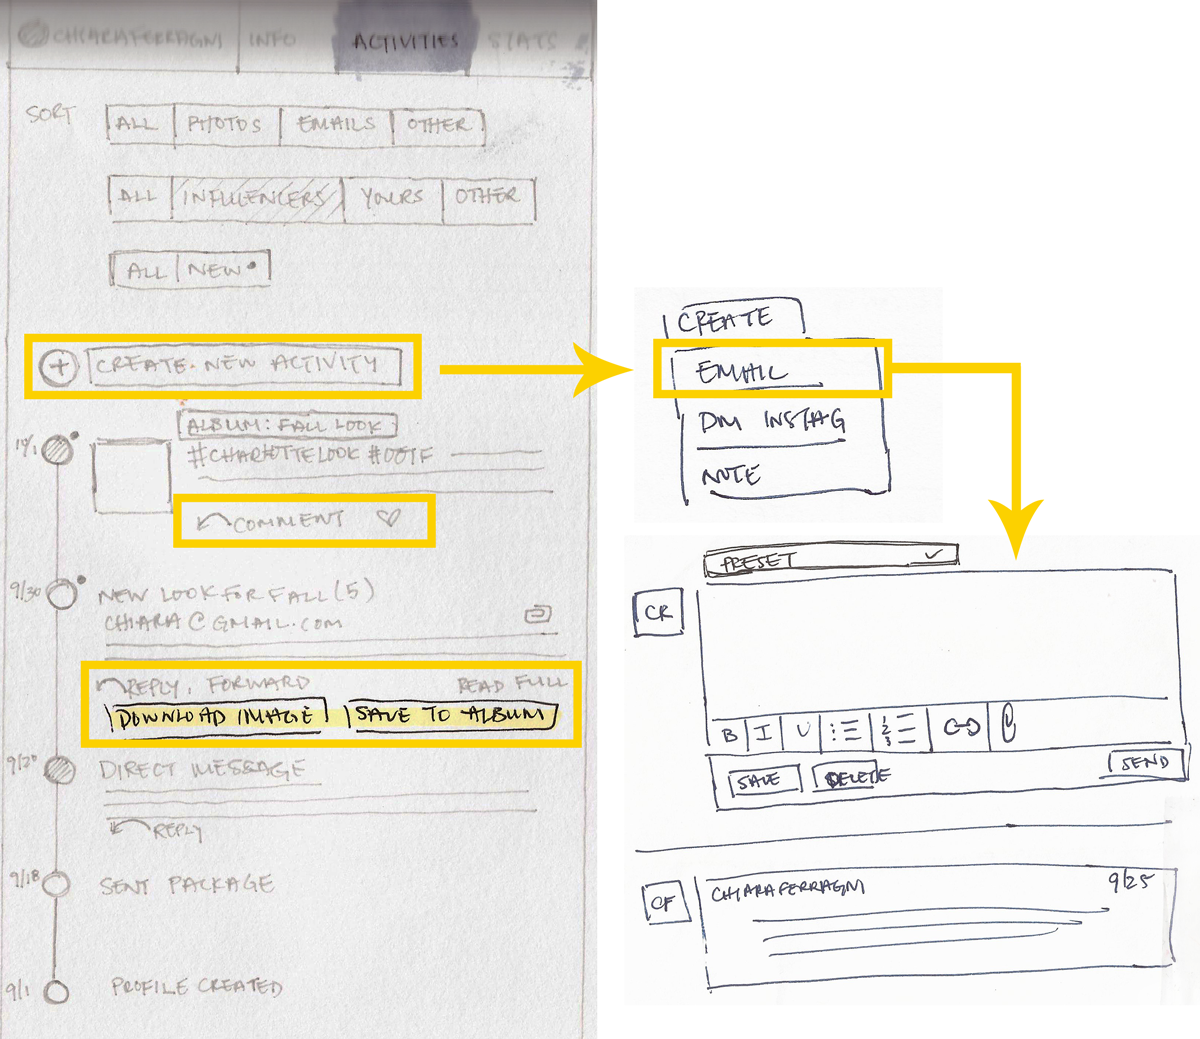 CHIARAFERRAGNI INFO ACTIVITIES STATS
SORT ALL PHOTOS EMAILS OTHER
ALL INFLUENCERS YOURS OTHER
ALL NEW
CREATE NEW ACTIVITY
ALBUM: FALL LOOK
#CHARLOTTELOOK #OOTF
COMMENT
9/30 NEW LOOK FOR FALL (5)
CHIARA@GMAIL.COM
REPLY, FORWARD READ FULL
DOWNLOAD IMAGE SAVE TO ALBUM
DIRECT MESSAGE
REPLY
9/18 SENT PACKAGE
9/1 PROFILE CREATED
CREATE
EMAIL
DM INSTAG
NOTE
PRESET
CR
B I U 1 2 3
SAVE DELETE SEND
CF CHIARAFERRAGNI 9/25